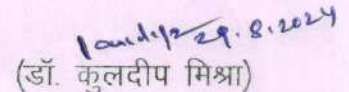 29.8.2024
(डॉ. कुलदीप मिश्रा)